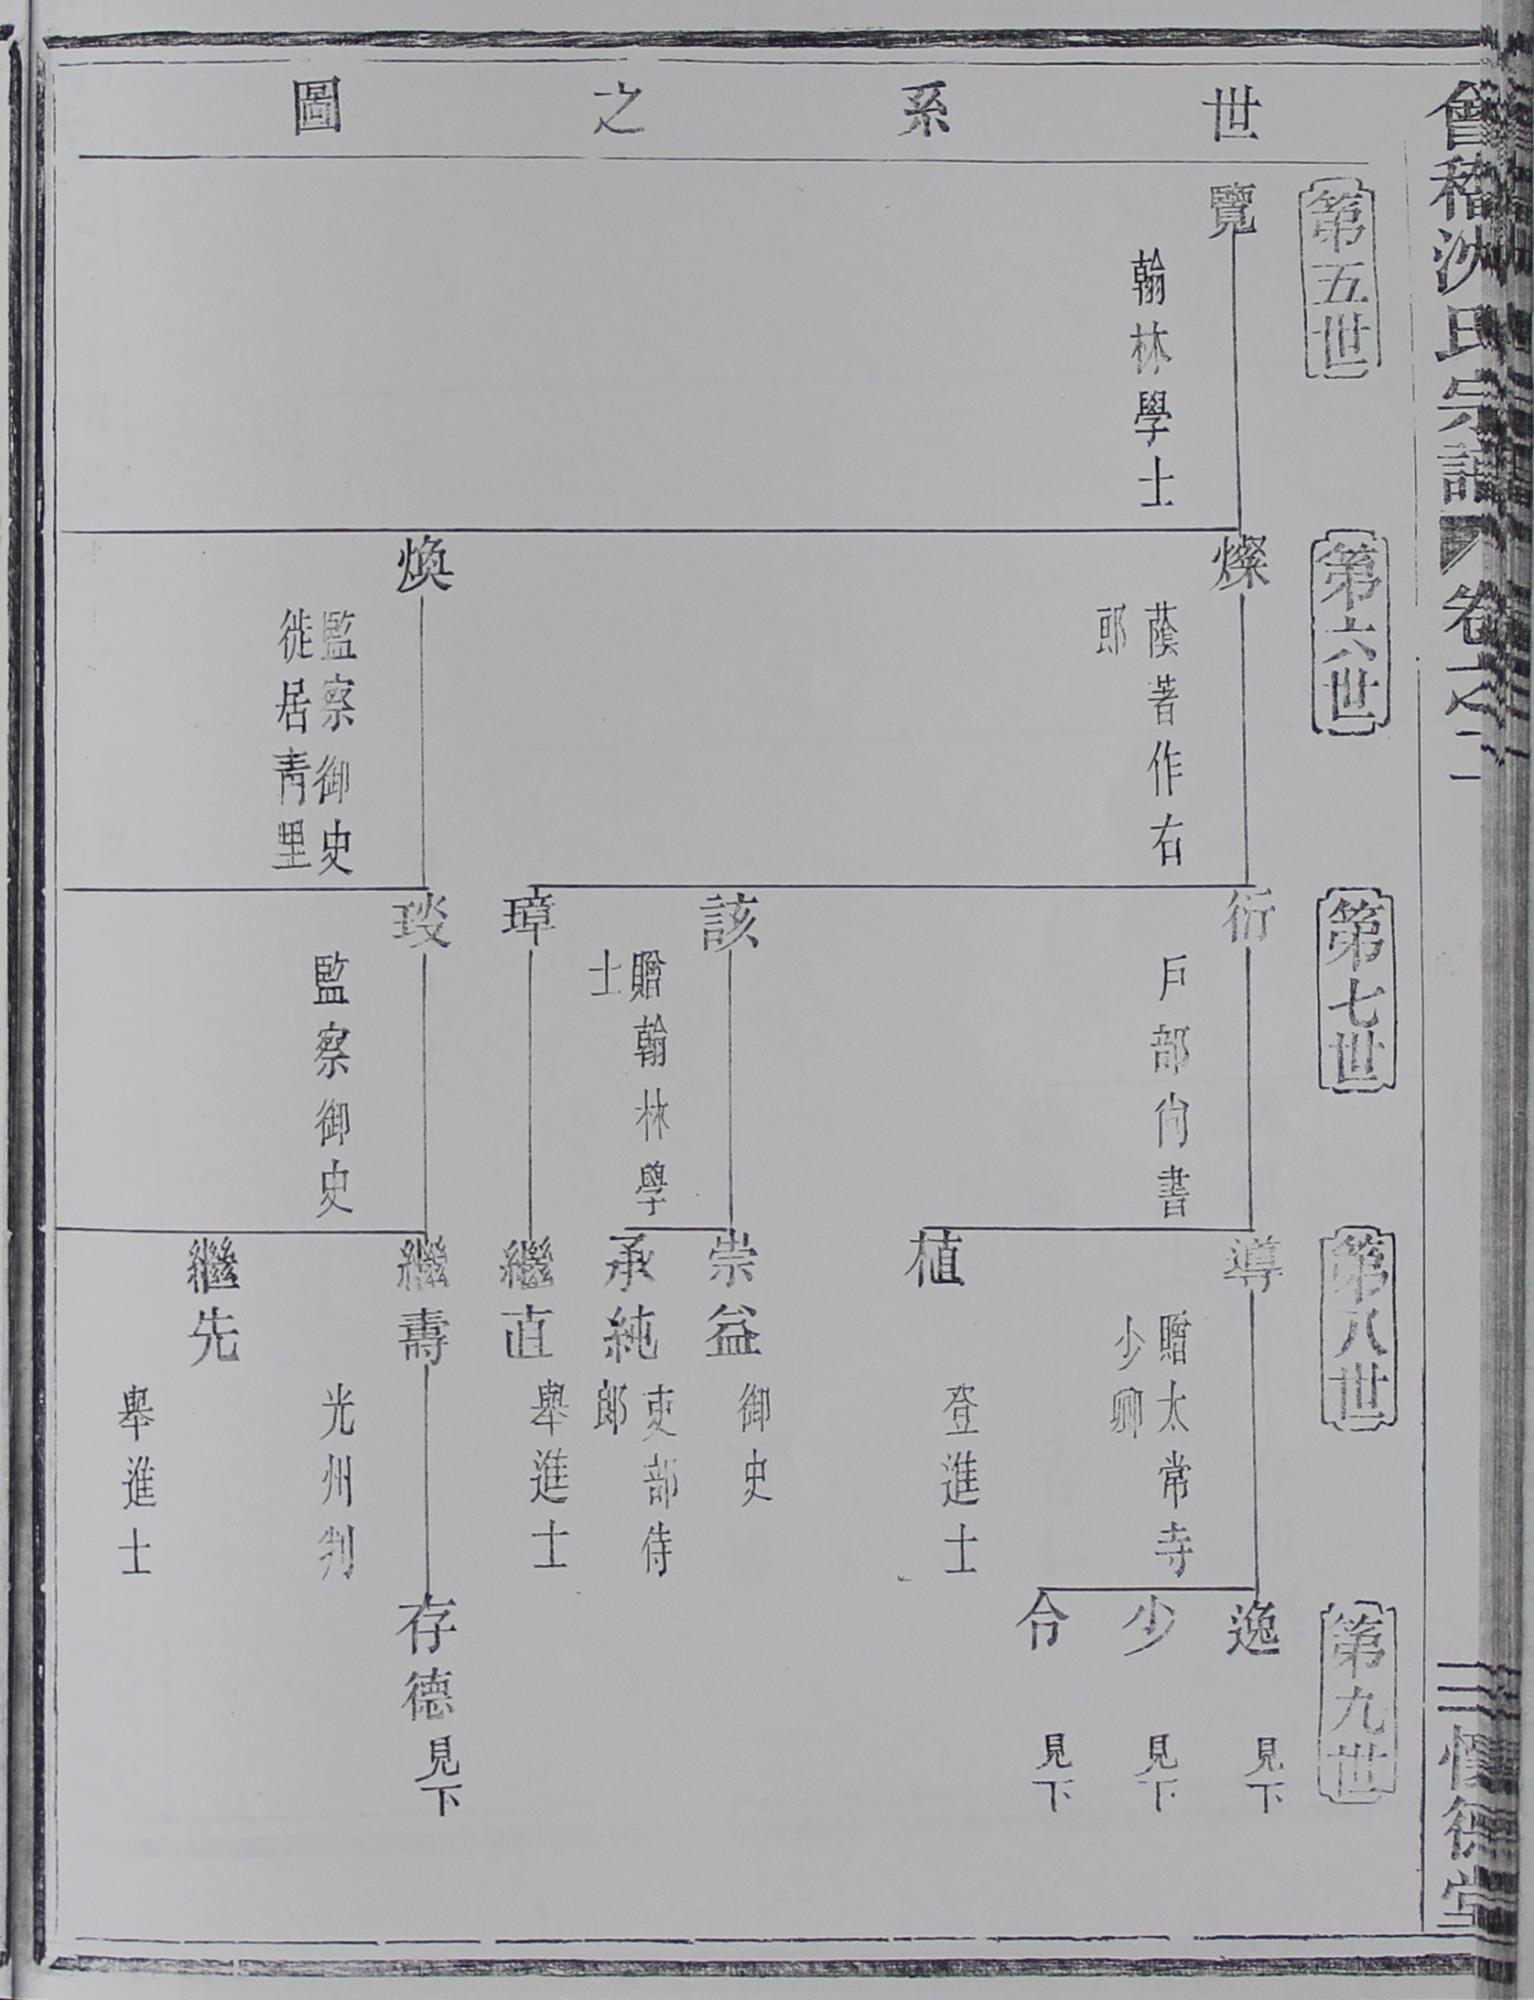 會稽沈氏宗譜 卷之二
三 德堂
世系之圖
第五世
覽
翰林學士
第六世
燦
蔭著作右
郎
煥
監察御史
徙居青里
第七世
衍
戶部尚書
該
贈翰林學
士
璋
琰
監察御史
第八世
導
贈太常寺
少卿
植
登進士
崇益
御史
承純
吏部侍
郎
繼直
舉進士
繼壽
光州判
繼先
舉進士
第九世
逸
見下
少
見下
令
見下
存德
見下